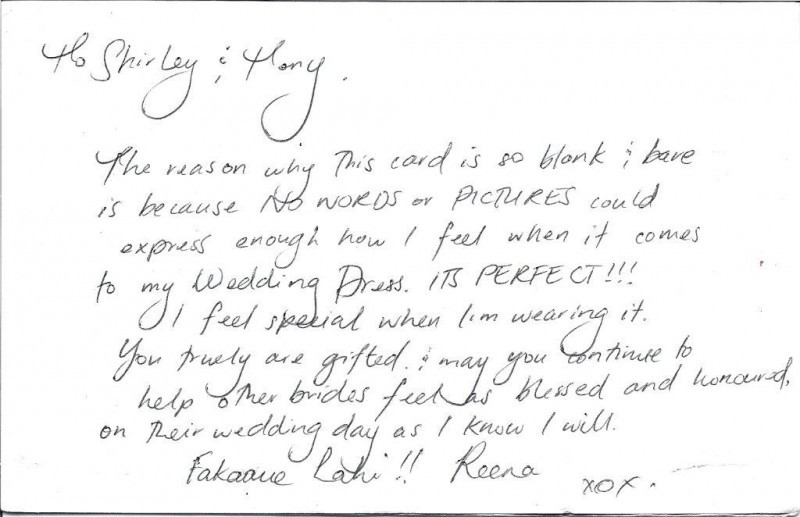 To Shirley & Hony.
The reason why This card is so blank & bare
is because NO WORDS or PICTURES could
express enough how I feel when it comes
to my Wedding Dress. ITS PERFECT!!!
I feel special when I'm wearing it.
You truely are gifted. & may you continue to
help other brides feel as blessed and honoured,
on their wedding day as I know I will.
Fakaaue Lahi!! Reena xox.